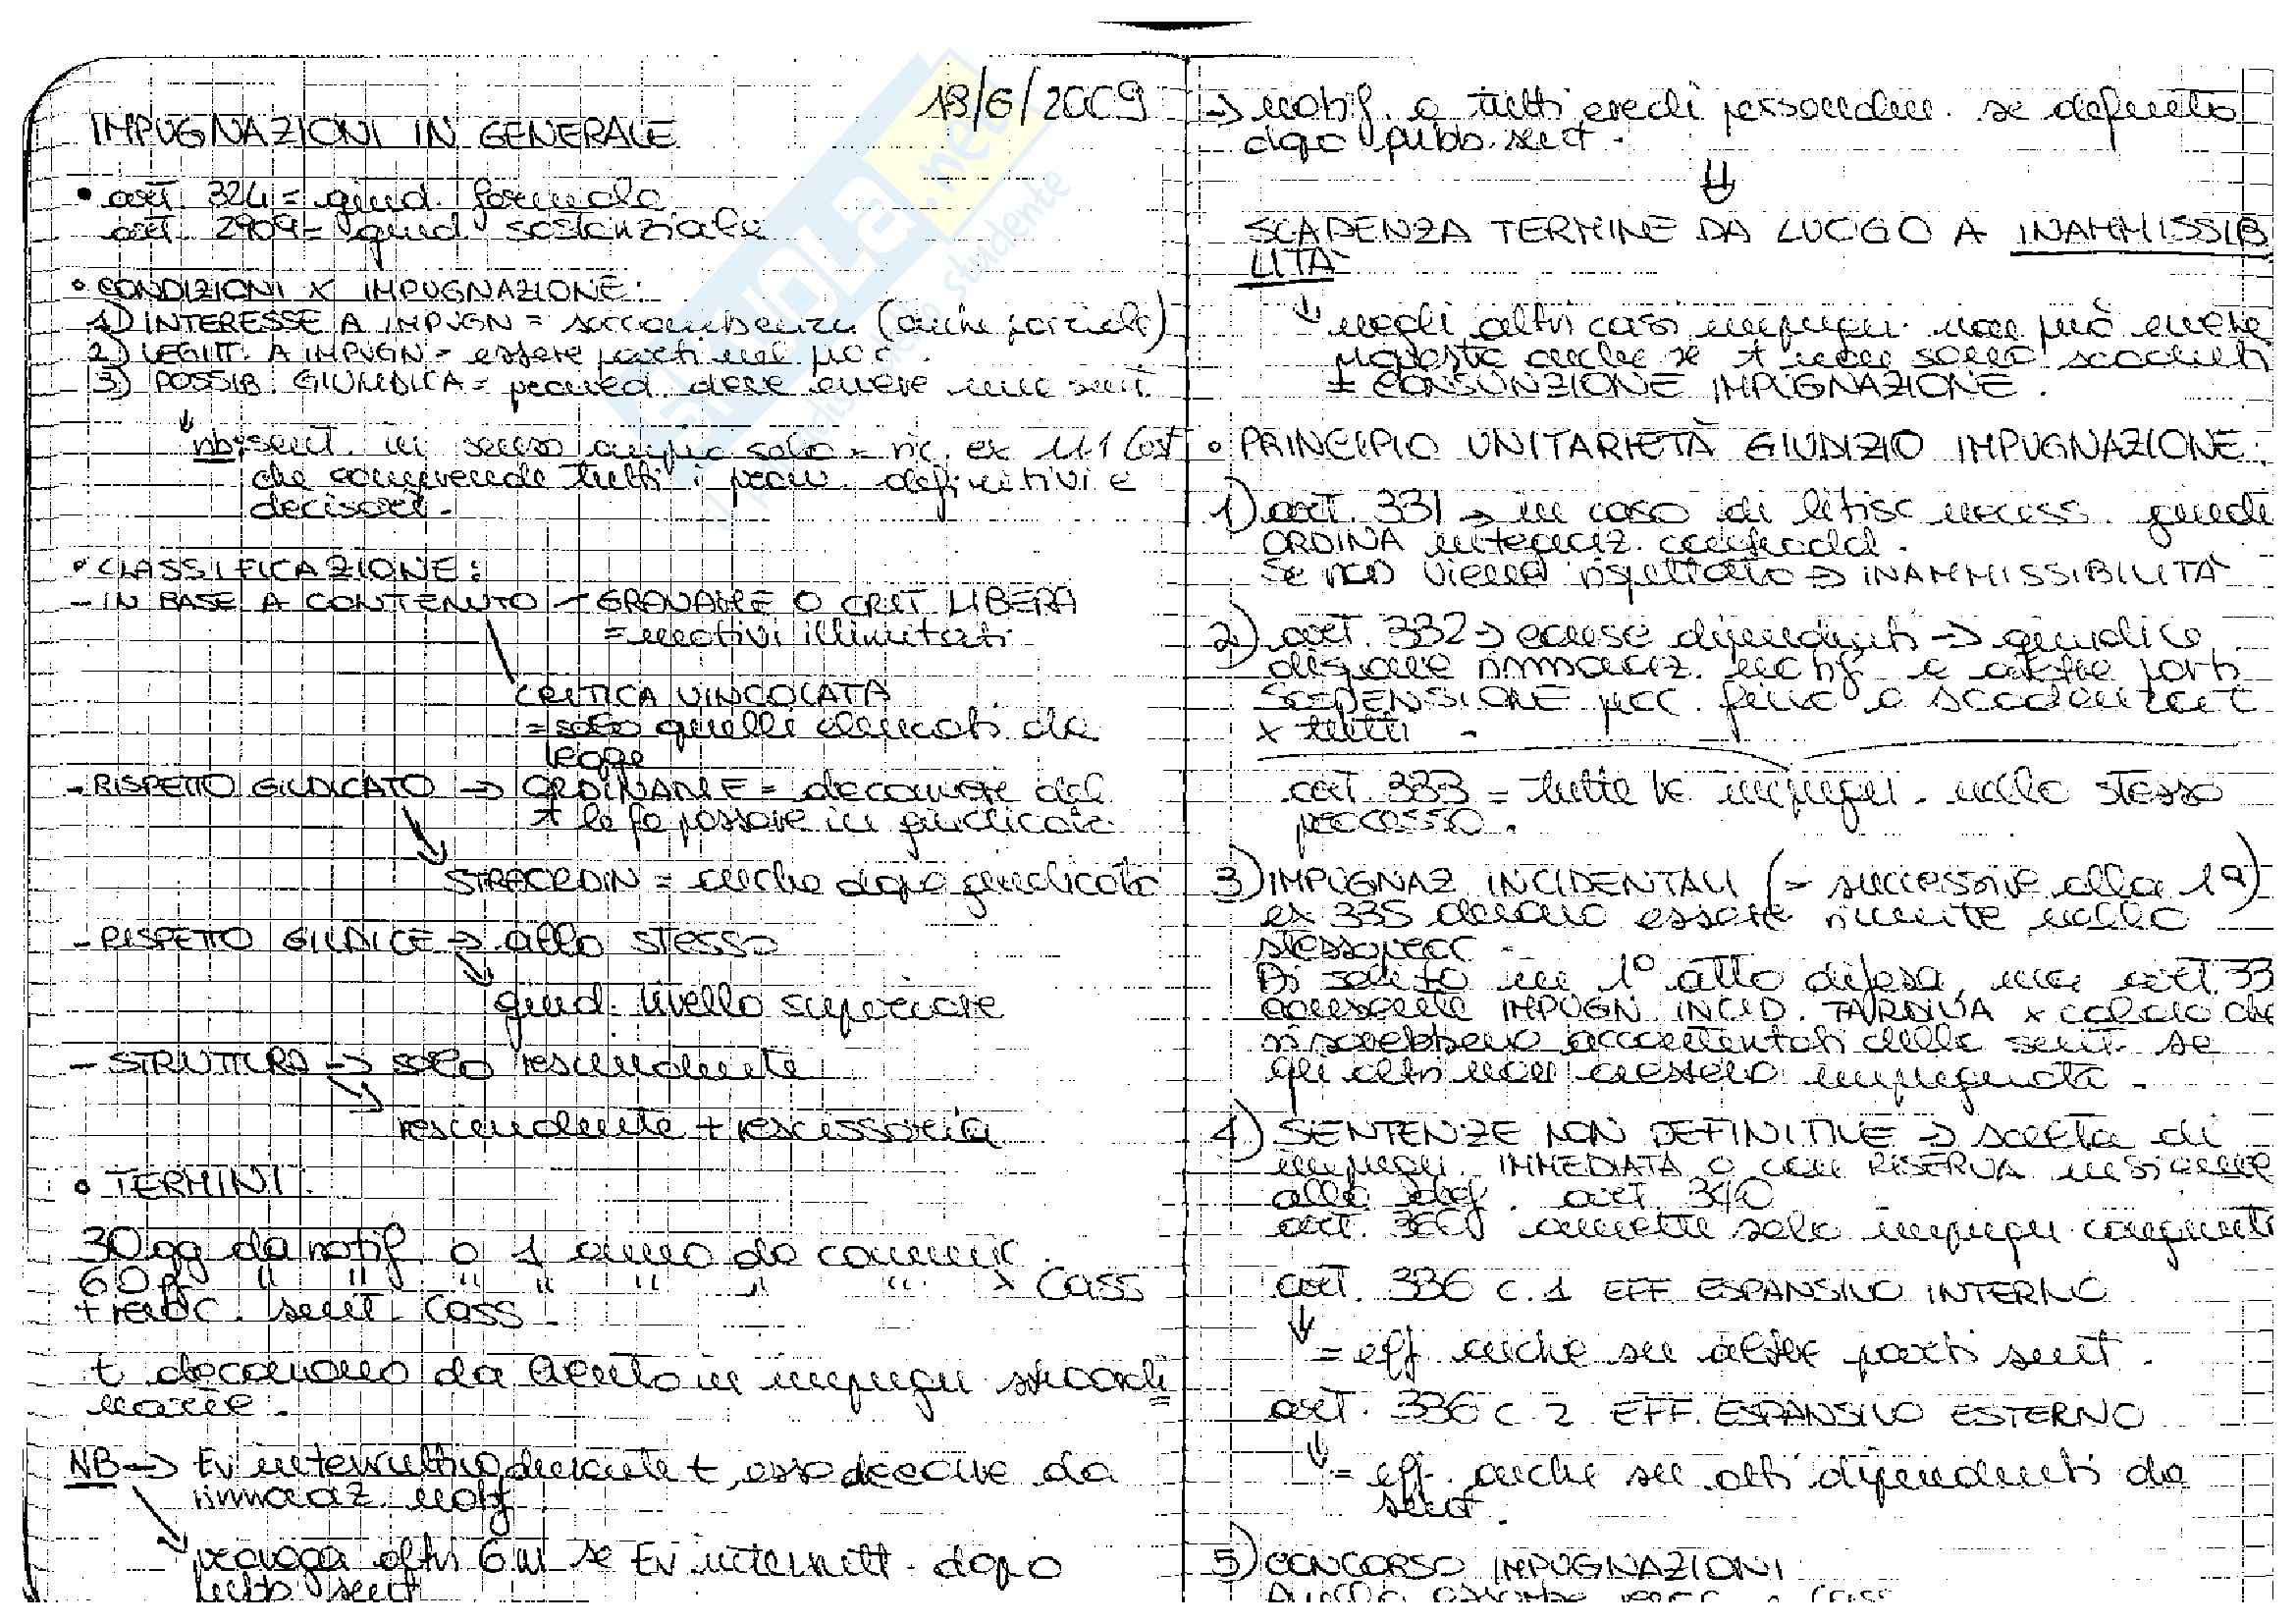 18/6/2009
IMPUGNAZIONI IN GENERALE
• art. 324 = giud. formale
art. 2909 = giud. sostanziale
• CONDIZIONI X IMPUGNAZIONE:
1) INTERESSE A IMPUGN = soccombenza (anche parziale)
2) LEGITT. A IMPUGN = essere parti nel proc.
3) POSSIB. GIURIDICA = provved. deve essere una sent.
↓
nb: sent. in senso ampio solo = ric. ex 111 Cost
che comprende tutti i provv. definitivi e
decisori.
• CLASSIFICAZIONE:
- IN BASE A CONTENUTO - GRAVAME O CRIT LIBERA
= motivi illimitati
CRITICA VINCOLATA
= solo quelli elencati da
legge
- RISPETTO GIUDICATO → ORDINARIE = decorrere del
t le fa passare in giudicato
STRAORDIN = anche dopo giudicato
- RISPETTO GIUDICE → allo stesso
giud. livello superiore
- STRUTTURA → solo rescindente
rescindente + rescissoria
• TERMINI:
30 gg da notif. o 1 anno da comunic.
60 g. " " " " " " " x Cass
+ revoc. sent. Cass.
t decorrono da evento in impugn straordi
narie.
NB → Ev interruttivo durante t, esso decorre da
rinnovaz. notif.
proroga altri 6 m se Ev interrutt. dopo
pubb sent
→ notif. a tutti eredi personalm. se defunto
dopo pubb. sent.
⇓
SCADENZA TERMINE DA LUOGO A INAMMISSIB
LITÀ
↓ negli altri casi impugn. non può essere
proposta anche se t non sono scaduti
= CONSUNZIONE IMPUGNAZIONE.
• PRINCIPIO UNITARIETÀ GIUDIZIO IMPUGNAZIONE:
1) art. 331 → in caso di litisc necess. giudi
ORDINA integraz. contradd.
Se non viene rispettato → INAMMISSIBILITÀ
2) art. 332 → cause dipendenti → giudice
dispone rinnovaz. notif a altre parti
SOSPENSIONE proc. fino a scadenza t
x tutti.
art. 333 = tutte le impugn. nello stesso
processo.
3) IMPUGNAZ. INCIDENTALI (= successive alla 1ª)
ex 335 devono essere riunite nello
stesso proc.
Di solito in 1° atto difesa, ma art. 33
consente IMPUGN INCID. TARDIVA x coloro che
si sarebbero accontentati della sent. se
gli altri non avessero impugnata.
4) SENTENZE NON DEFINITIVE → scelta di
impugn. IMMEDIATA o con RISERVA insieme
alla def. art 340
art. 360 ammette solo impugn congiunti
art. 336 c.1 EFF ESPANSIVO INTERNO
↓
= eff. anche su altre parti sent.
art. 336 c 2 EFF. ESPANSIVO ESTERNO
↓
= eff. anche su atti dipendenti da
sent.
5) CONCORSO IMPUGNAZIONI